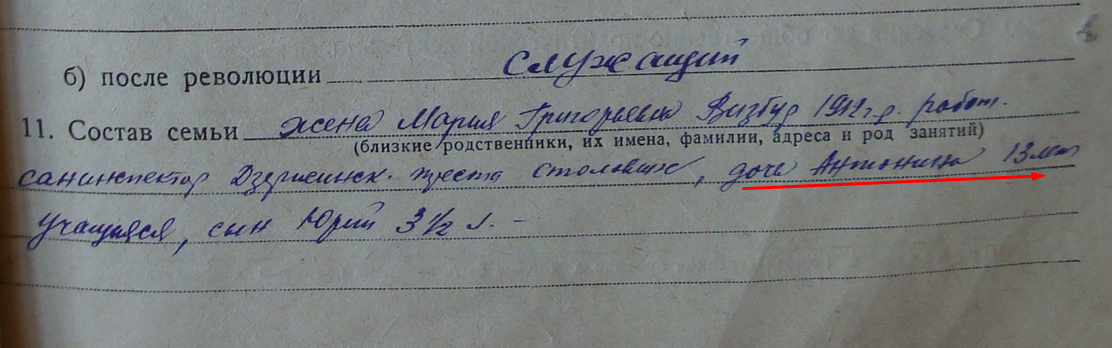 б) после революции служащий
11. Состав семьи жена Мария Григорьевна Визбур 1912 г.р. работ.
(близкие родственники, их имена, фамилии, адреса и род занятий)
санинспектор Дзержинск. треста столовых, дочь Антонина 13 лет
учащаяся, сын Юрий 3 1/2 г. -